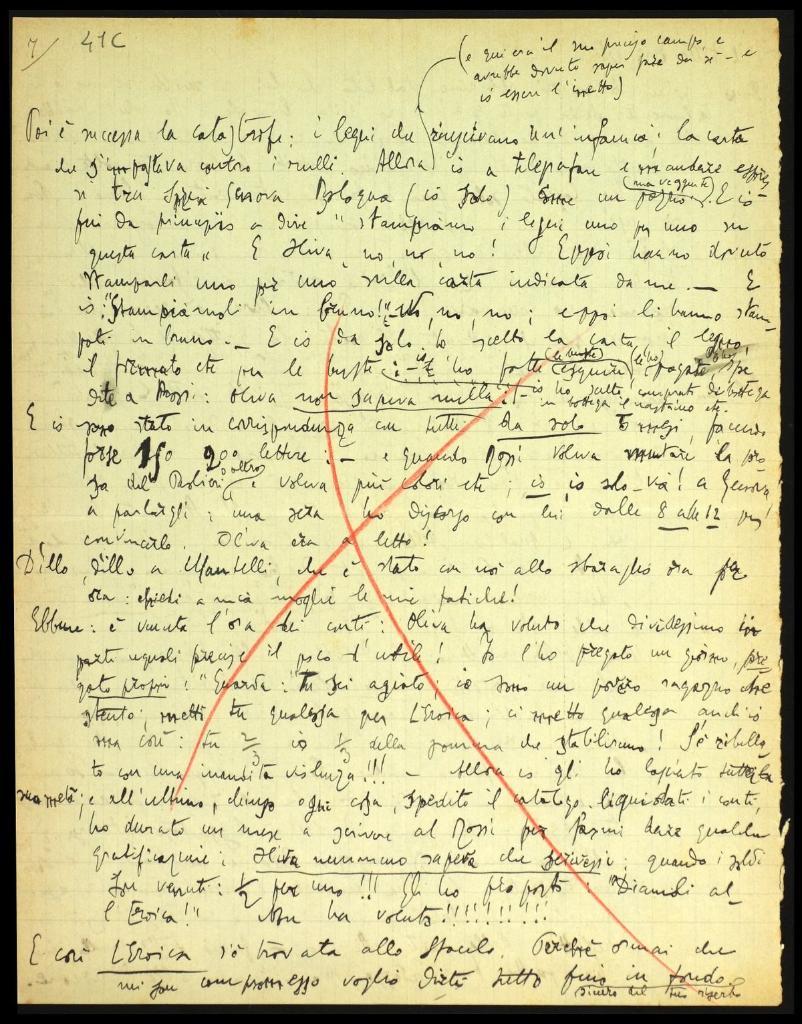 7/ 41C
(e qui era il suo preciso campo, e
avrebbe dovuto saper fare da sé - e
io essere l'inetto)
Poi è successa la catastrofe: i legni che riuscivano un'infamia; la carta
che s'impastava contro i rulli. Allora io a telefonare e mandare espres
si tra Spezia Genova Bologna (io solo)
(ma veggente). E io
fui da principio a dire "stampiamo i legni uno per uno su
questa carta" E Oliva, no, no, no! Eppoi hanno dovuto
stamparli uno per uno sulla carta indicata da me. — E
io: "Stampiamoli in bruno!" - No, no, no; eppoi li hanno stam-
pati in bruno. — E io da solo ho scelto la carta, il legno,
il etc per le buste: - io ho fatte eseguire (le buste) (le ho) pagate spe
dite a Rossi: Oliva non sapeva nulla! - io ho scelto, comprati di bottega
in bottega il nastrino etc.
E io sono stato in corrispondenza con tutti. Da solo mi svolsi, facendo
forse 150 200 lettere: — e quando Rossi voleva mutare la pro
sa del Paolieri (o altro) e voleva più colori etc; io, io solo - via! a Genova
a parlargli; una sera ho discorso con lui dalle 8 alle 12 per
convincerlo. Oliva era a letto!
Dillo, dillo a Mantelli, che è stato con noi allo sbaraglio ora per
ora: chiedi a mia moglie le mie fatiche!
Ebbene: è venuta l'ora dei conti: Oliva ha voluto che dividessimo in
parti uguali precise il poco d'utile! Io l'ho pregato un giorno, pre
gato proprio: "Guarda: Tu sei agiato; io sono un povero ragazzo che
stento; metti tu qualcosa per L'Eroica; ci metto qualcosa anch'io
ma così: tu 2/3 io 1/3 della somma che stabiliremo! S'è ribella
to con una inaudita violenza!!! - Allora io gli ho lasciato tutta la
sua metà; e all'ultimo, chiuso ogni cosa, spedito il catalogo, liquidati i conti,
ho durato un mese a scrivere al Rossi per farmi dare qualche
gratificazione: Oliva nemmeno sapeva che scrivessi; quando i soldi
son venuti: 1/2 per uno!!! Gli ho proposto: "Diamoli al
l'Eroica!" Non ha voluto!!!!!!!!!!
E così L'Eroica s'è trovata allo sfacelo. Perché ormai che
mi son compromesso voglio dirti tutto fino in fondo.
sicuro del tuo riserbo